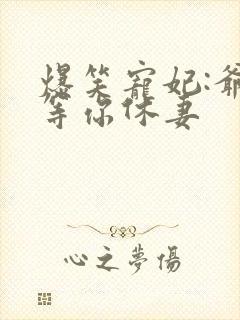 爆笑寵妃:爺
等你休妻
心之夢傷